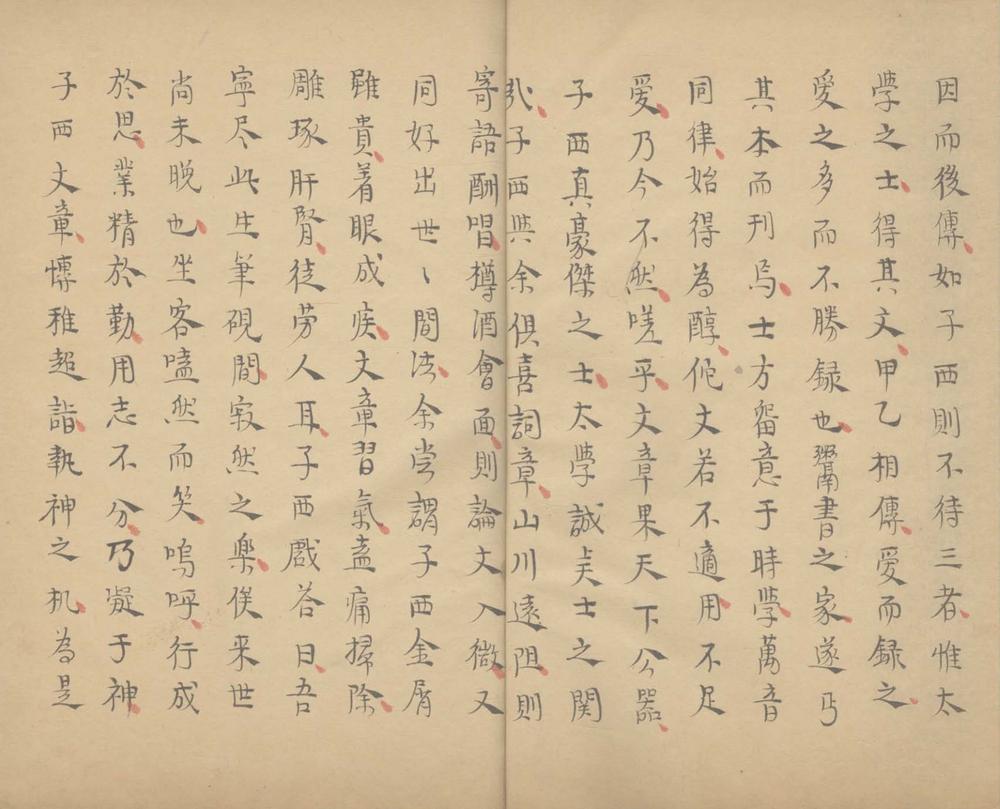 因而後傳如子西則不待三者惟太
學之士得其文甲乙相傳愛而録之
愛之多而不勝録也鬻書之家遂丐
其本而刊焉士方畱意于時學萬音
同律始得為醇佗文若不適用不足
愛乃今不然嗟乎文章果天下公器
子西真豪傑之士太學誠矣士之関
子西與余俱喜詞章山川遠阻則
寄語酬唱樽酒會面則論文入微又
同好出世〻間法余嘗謂子西金屑
雖貴着眼成疾文章習氣盍痛掃除
雕琢肝腎徒劳人耳子西戲荅曰吾
寧尽此生筆硯間寂然之樂俟来世
尚未晚也坐客嗑然而笑嗚呼行成
於思業精於勤用志不分乃凝于神
子西文章慱雅超詣執神之机為是